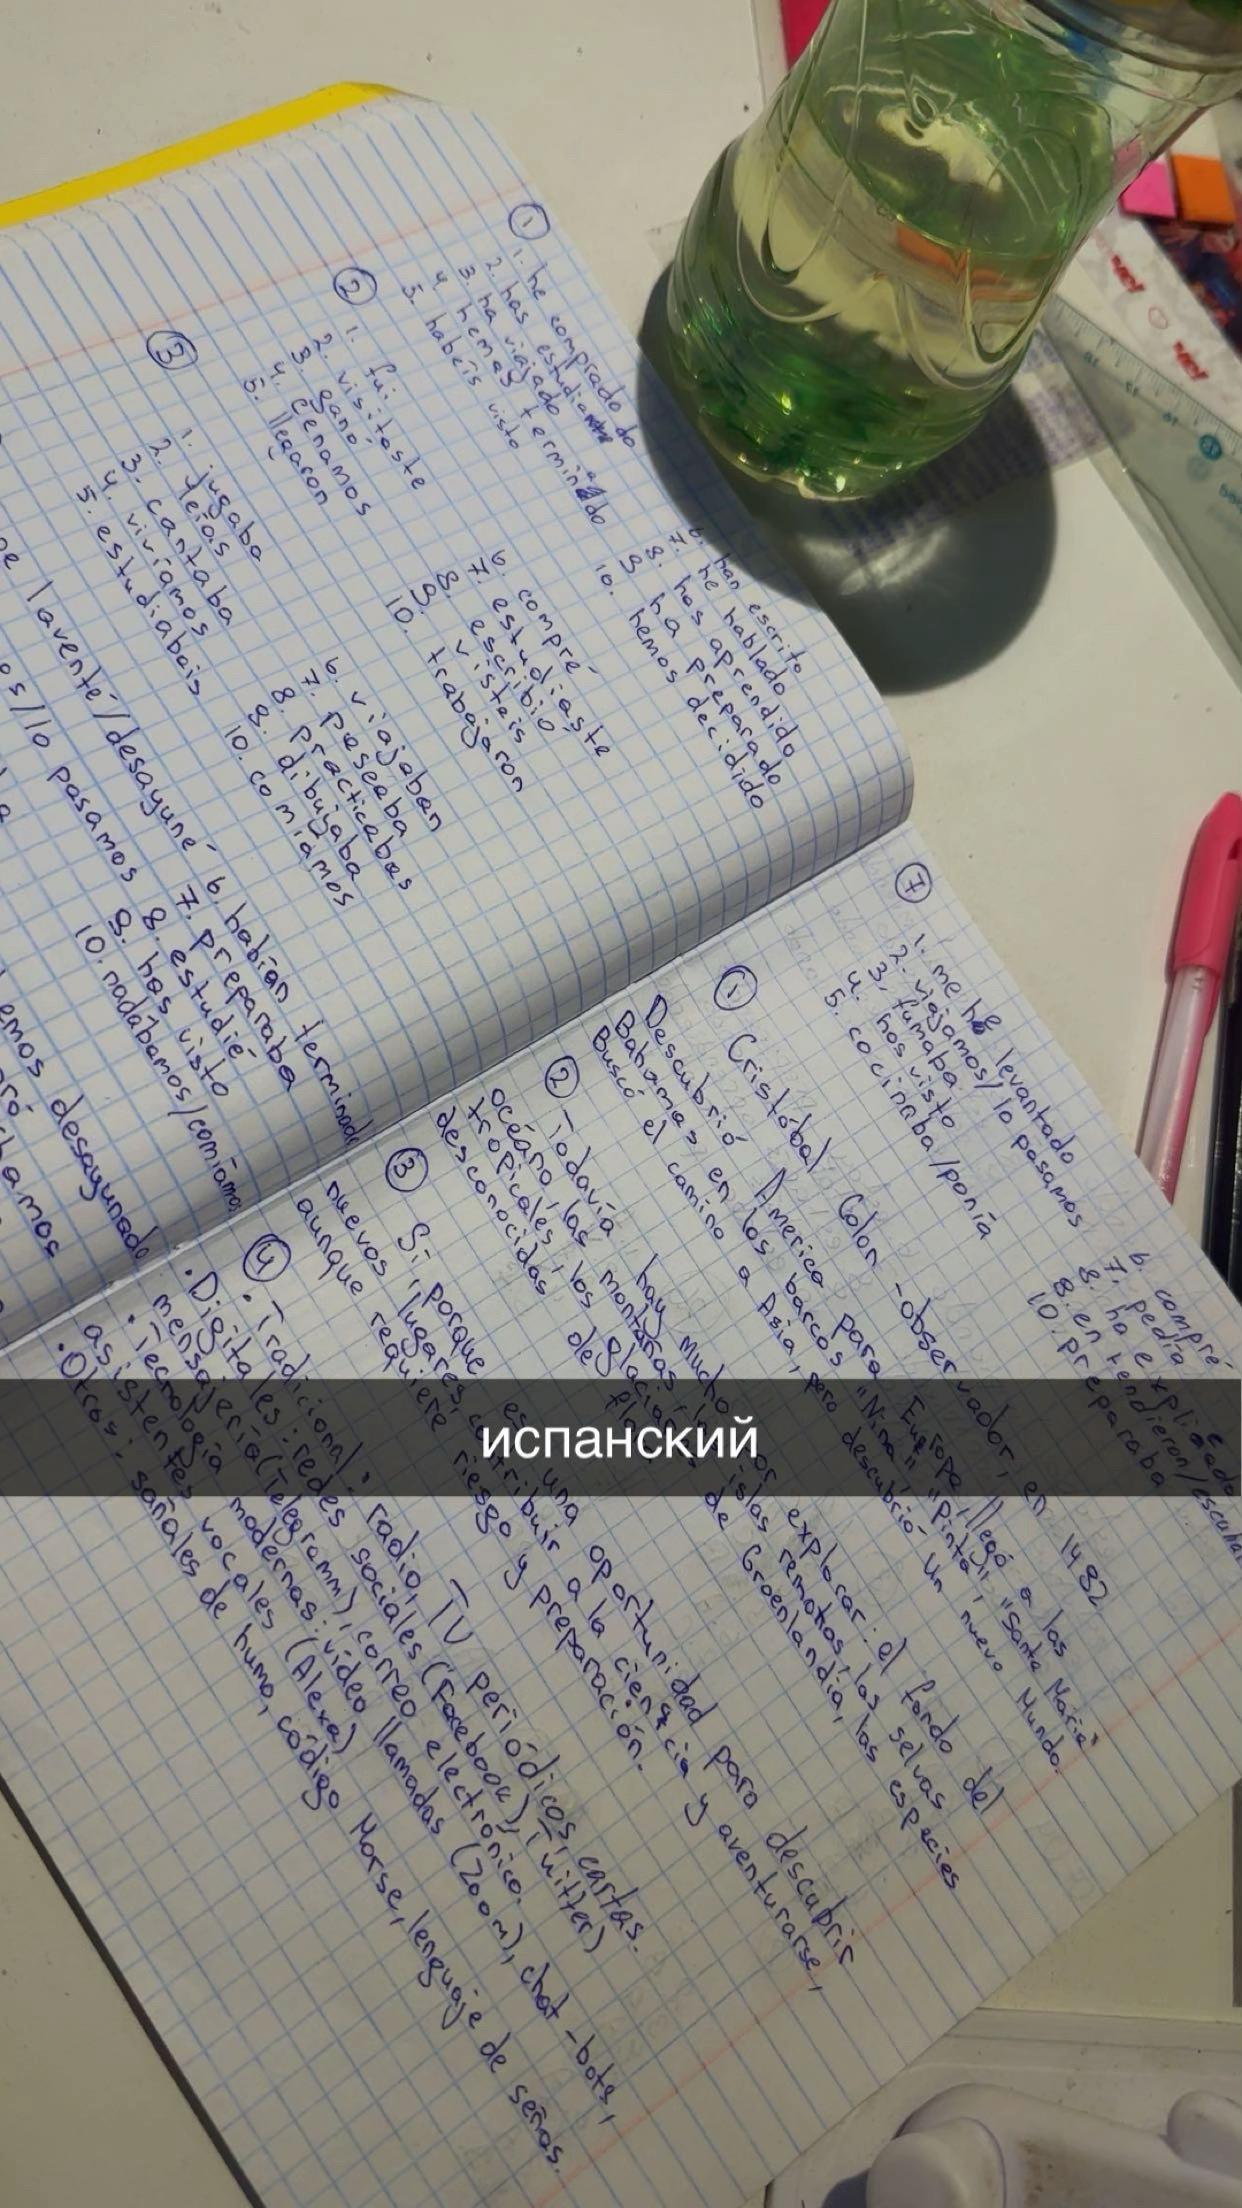 ①
1. he comprado
2. has estudiado
3. ha viajado
4. hemos terminado
5. habéis visto
6. han escrito
7. he hablado
8. has aprendido
9. ha preparado
10. hemos decidido
②
1. fui
2. visitaste
3. ganó
4. cenamos
5. llegaron
6. compré
7. estudiaste
8. escribió
9. visteis
10. trabajaron
③
1. jugaba
2. leías
3. cantaba
4. vivíamos
5. estudiabais
6. viajaban
7. paseaba
8. practicabas
9. dibujaba
10. comíamos
laventé/desayuné
/lo pasamos
6. habían terminado
7. preparaba
8. estudié
9. has visto
10. nadábamos/comíamos
emos desayunado
chamos
⑦
1. me he levantado
2. viajamos/lo pasamos
3. fumaba
4. has visto
5. cocinaba/ponía
6. compré
7. pedía
8. ha explicado
8. entendieron/escucha
10. preparaba
① Cristóbal Colon - observador, en 1482
Descubrió America para Europa, llegó a las
Bahamas en los barcos "Nina", "Pinta", "Santa Maria"
Buscó el camino a Asia, pero descubrió un nuevo Mundo.
② Todavía hay mucho por explorar: el fondo del
océano, las montañas, islas remotas, las selvas
tropicales, los glaciares de Groenlandia, las especies
desconocidas de
③ Sí, porque es una oportunidad para descubrir
nuevos lugares, contribuir a la ciencia y aventurarse,
aunque requiere riesgo y preparación.
④ • Tradicional: radio, TV periódicos, cartas.
• Digitales: redes sociales (Facebook), Twitter)
mensajería (Telegramm), correo electrónico.
• Tecnología modernas: vídeo llamadas (Zoom), chat-bots,
asistentes vocales (Alexa)
• Otros: sañales de humo, código Morse, lenguaje de señas.
испанский